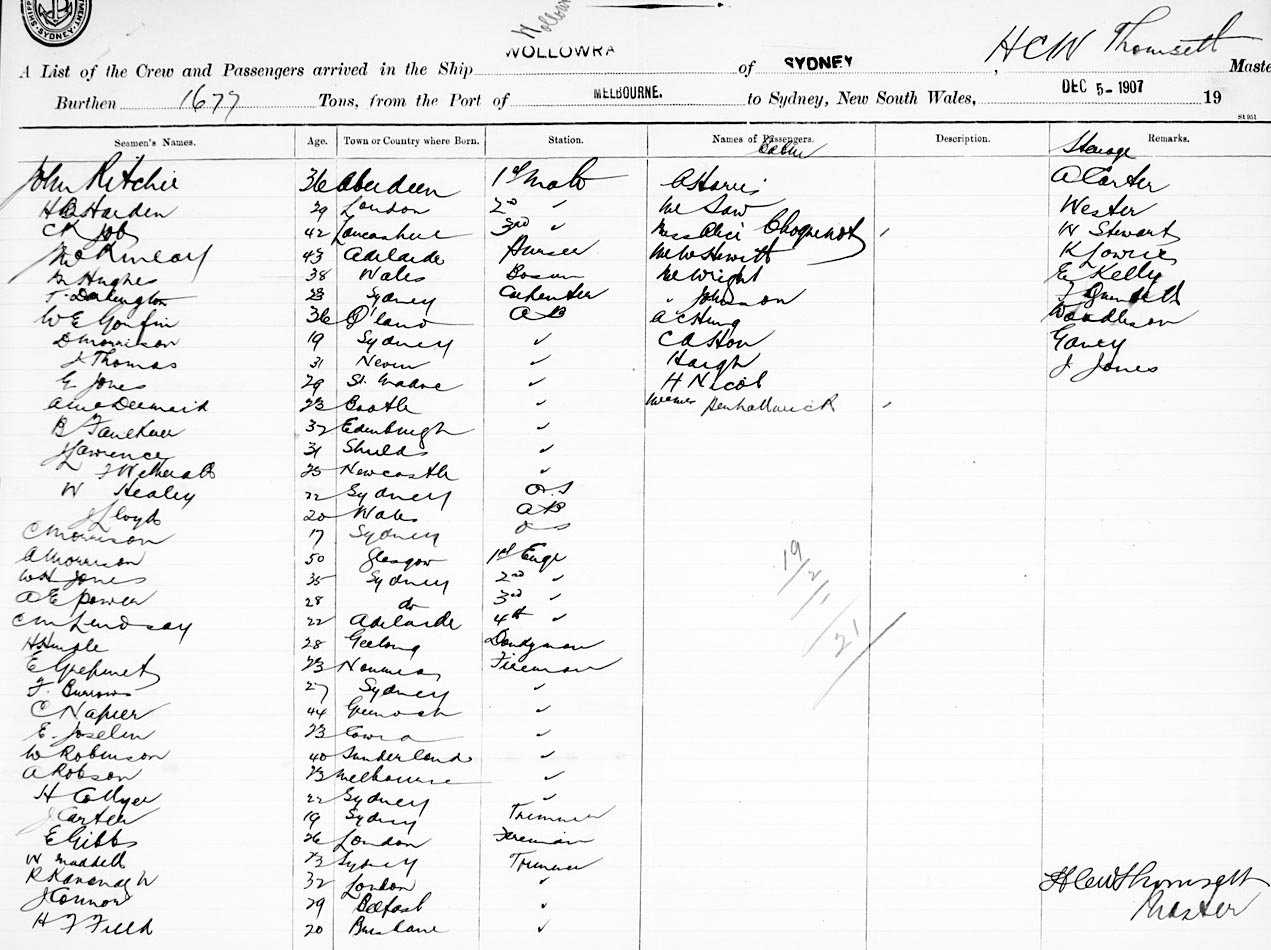 WOLLOWRA
A List of the Crew and Passengers arrived in the Ship WOLLOWRA of SYDNEY, HCW Thomsett Maste
Burthen 1677 Tons, from the Port of MELBOURNE. to Sydney, New South Wales, DEC 5- 1907 19
St 951
Seamen's Names. Age. Town or Country where Born. Station. Names of Passengers. Description. Remarks.
Cabin Steerage
John Ritchie 36 Aberdeen 1st Mate A Harris A Carter
H B Harden 29 London 2nd " Mr Saw Wester
C R Job 42 Lancashire 3rd " Miss Alice Choquenot W Stewart
McKinlay 43 Adelaide Purser Mr W Hewitt K Jowrie
M Hughes 38 Wales Bosun Mr Wright E Kelly
T. Darlington 23 Sydney Carpenter " Johnson
W E 36 Q'land AB A C Hung
D Morrison 19 Sydney ✓ C Ashton Gavey
J Thomas 31 Nevin ✓ Haigh J Jones
E Jones 29 St. ✓ H Nicol
A McDermaid 23 Bootle ✓ Penhallurick
B Faulkner 32 Edinburgh ✓
J Lawrence 31 Shields ✓
25 Newcastle ✓
W Healey 22 Sydney O.S
J Lloyd 20 Wales AB
C Morrison 17 Sydney O S
A Morrison 50 Glasgow 1st Engr
W H Jones 35 Sydney 2nd "
A E Power 28 do 3rd "
C M Lindsay 22 Adelaide 4th "
H Hingle 28 Geelong Donkyman
E 23 Noumea Fireman
F. Burrows 27 Sydney ✓
C Napier 44 Greenock ✓
E. Joselin 23 Cowra ✓
W Robinson 40 Sunderland ✓
A Robson 23 Melbourne ✓
H Collyer 22 Sydney ✓
J Carter 19 Sydney Trimmer
E Gibbs 26 London Fireman
W Maddell 23 Sydney Trimmer
R Kavanagh 32 London ✓
J Connor 29 Belfast ✓
H J Field 20 Brisbane ✓
19/2/1/21
HCW Thomsett
Master